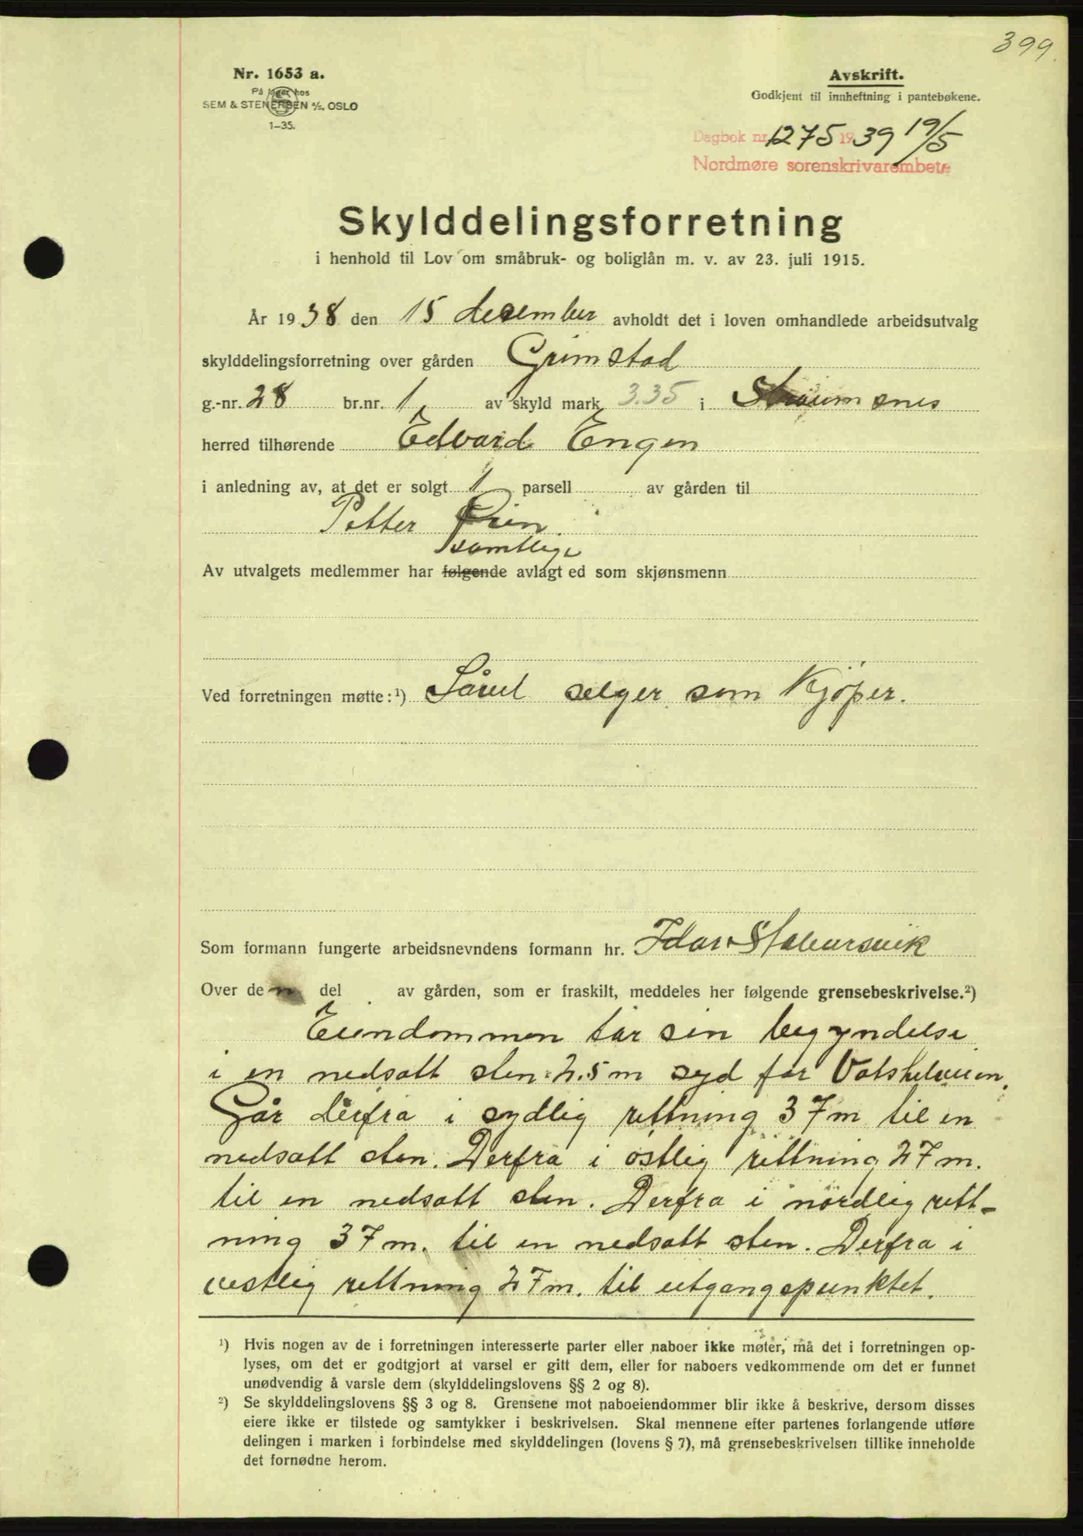 399.
Nr. 1653 a.
På lager hos
SEM & STENERSEN A/S, OSLO
1-35.
Avskrift.
Godkjent til innheftning i pantebøkene.
Dagbok nr. 1275 1939 19/5
Nordmøre sorenskrivarembete
Skylddelingsforretning
i henhold til Lov om småbruk- og boliglån m. v. av 23. juli 1915.
År 1938 den 15 desember avholdt det i loven omhandlede arbeidsutvalg
skylddelingsforretning over gården Grimstad
g.-nr. 28 br.nr. 1 av skyld mark 3.35 i Straumsnes
herred tilhørende Edvard Engen
i anledning av, at det er solgt 1 parsell av gården til
Petter
samtlige
Av utvalgets medlemmer har følgende avlagt ed som skjønsmenn
Ved forretningen møtte:¹) Såvel selger som Kjøper.
Som formann fungerte arbeidsnevndens formann hr. Idar Stabursvik
Over de n del av gården, som er fraskilt, meddeles her følgende grensebeskrivelse.²)
Eiendommen tar sin begyndelse
i en nedsatt sten 2.5 m syd for
Går derfra i sydlig rettning 37 m til en
nedsatt sten. Derfra i østlig rettning 27 m.
til en nedsatt sten. Derfra i nordlig rett-
ning 37 m. til en nedsatt sten. Derfra i
vestlig rettning 27 m. til utgangspunktet.
¹) Hvis nogen av de i forretningen interesserte parter eller naboer ikke møter, må det i forretningen op-
lyses, om det er godtgjort at varsel er gitt dem, eller for naboers vedkommende om det er funnet
unødvendig å varsle dem (skylddelingslovens §§ 2 og 8).
²) Se skylddelingslovens §§ 3 og 8. Grensene mot naboeiendommer blir ikke å beskrive, dersom disses
eiere ikke er tilstede og samtykker i beskrivelsen. Skal mennene efter partenes forlangende utføre
delingen i marken i forbindelse med skylddelingen (lovens § 7), må grensebeskrivelsen tillike inneholde
det fornødne herom.